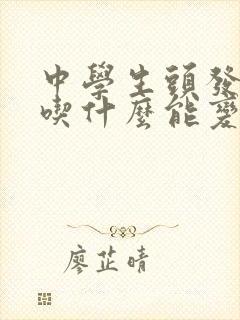 中學生頭發
喫什麼能變
廖芷晴